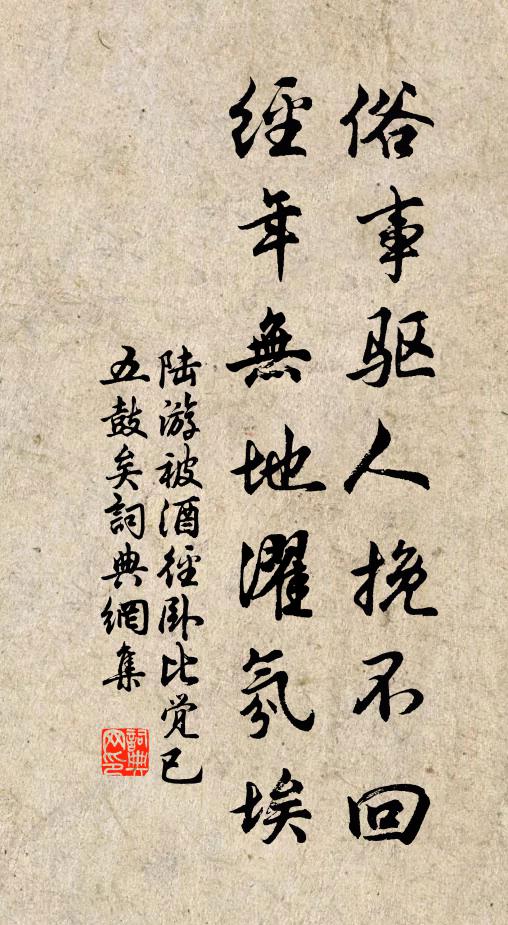 俗事驱人挽不回
經年無地濯氛埃
陆游被酒径卧比觉已
五鼓矣詞典網集
詞典网印